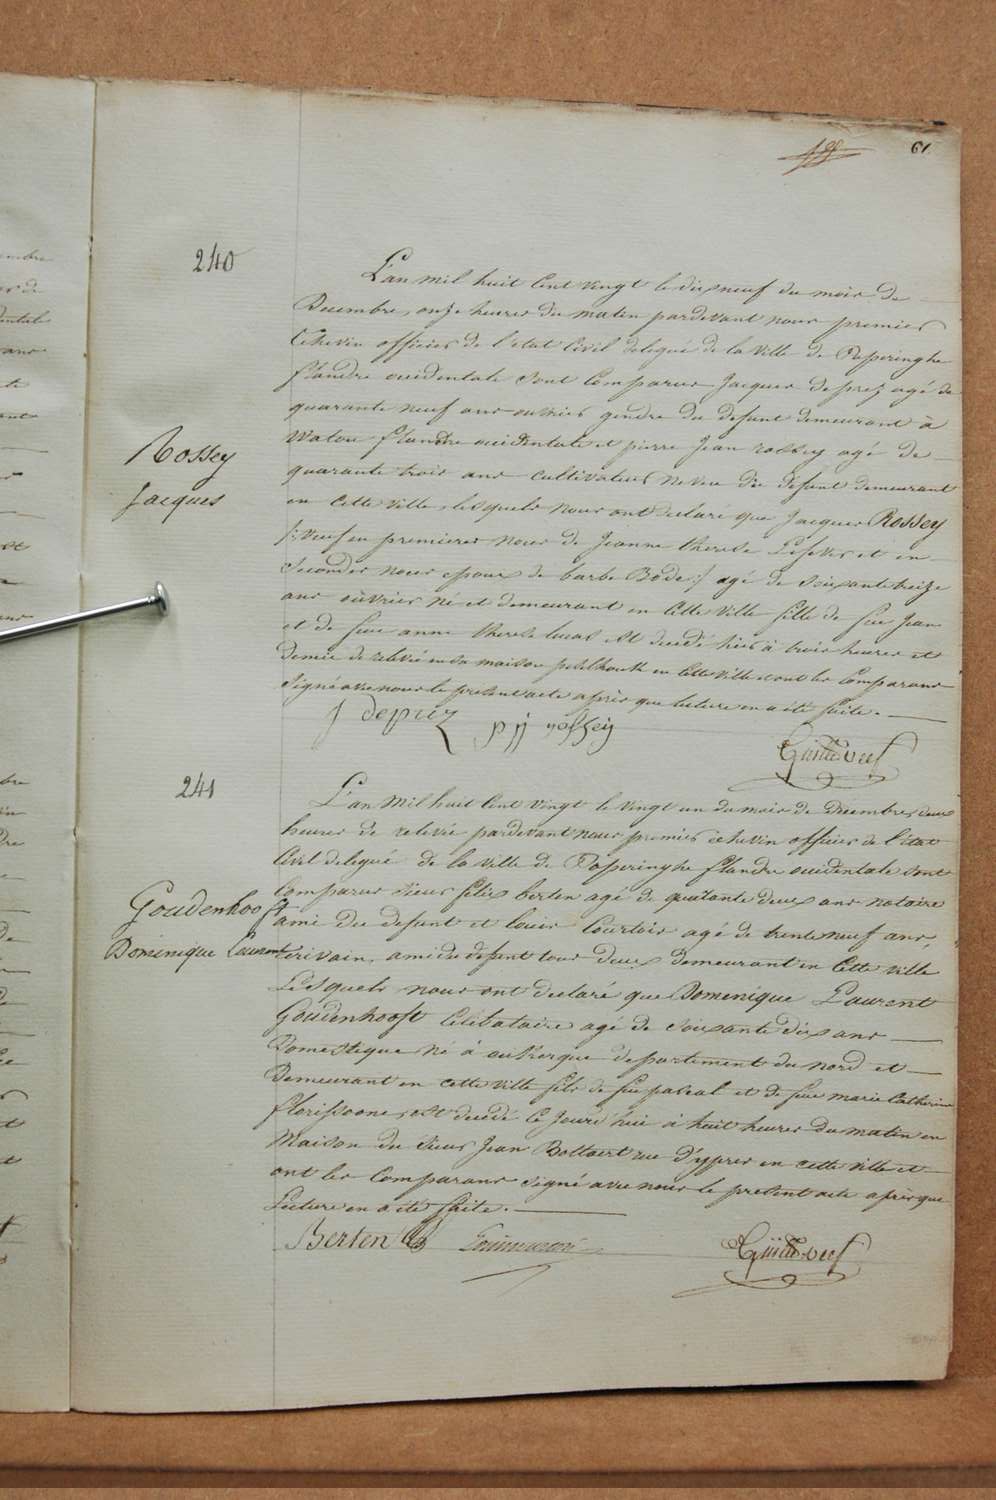 61
240
Rossey
Jacques
L'an mil huit Cent vingt le dix neuf du mois de
Decembre, onze heures du matin pardevant nous premier
Echevin officier de l'etat Civil delegué de la Ville de Poperinghe
flandre occidentale sont Comparus Jacques deprez agé de
quarante neuf ans ouvrier gendre du defunt demeurant à
Watou flandre occidentale et pierre Jean rossey agé de
quarante trois ans cultivateur neveu du defunt demeurant
en cette ville, lesquels nous ont declaré que Jacques Rossey
/: veuf en premieres noces de Jeanne therese Lefever et en
secondes noces epoux de barbe Bode :/ agé de soixante treize
ans ouvrier né et demeurant en Cette Ville fille de feu Jean
et de feue anne therese lucas est decedé hier à trois heures et
demie de relevée en sa maison en Cette Ville et ont les Comparans
signé avec nous le present acte après que lecture en a été faite.
J depriez pjj rossey
241
Goudenhooft
Dominique Laurent
L'an mil huit Cent vingt le vingt un du mois de Decembre, deux
heures de relevée pardevant nous premier echevin officier de l'état
Civil delegué de la Ville de Poperinghe flandre occidentale sont
Comparus sieurs felix berten agé de quarante deux ans notaire
ami du defunt et louis Courtois agé de trente neuf ans,
ecrivain, ami du defunt tous deux demeurant en Cette ville
Lesquels nous ont declaré que Domenique Laurent
Goudenhooft Celibataire agé de soixante dix ans
Domestique né à oukerque departement du nord et
Demeurant en cette ville fils de feu pascal et de feue marie Catherine
florissoone, est decedé Ce Jourd'hui à huit heures du matin en
Maison du sieur Jean Bottaert rue d'ypres en cette ville et
ont les Comparans signé avec nous le present acte après que
Lecture en a été faite.
Berten